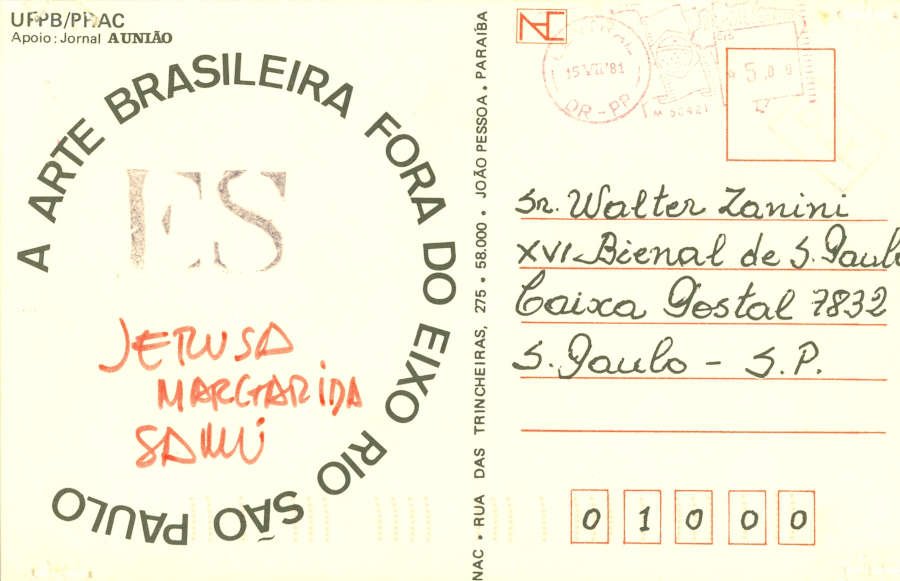 UFPB/PRAC
Apoio: Jornal A UNIÃO
A ARTE BRASILEIRA FORA DO EIXO RIO SÃO PAULO
ES
JERUSA
MARGARIDA
SAMÚ
NAC • RUA DAS TRINCHEIRAS, 275 • 58.000 • JOÃO PESSOA • PARAÍBA
NAC
81
DR-PP
Sr. Walter Zanini
XVI-Bienal de S. Paulo
Caixa Postal 7832
S. Paulo - S.P.
0 1 0 0 0